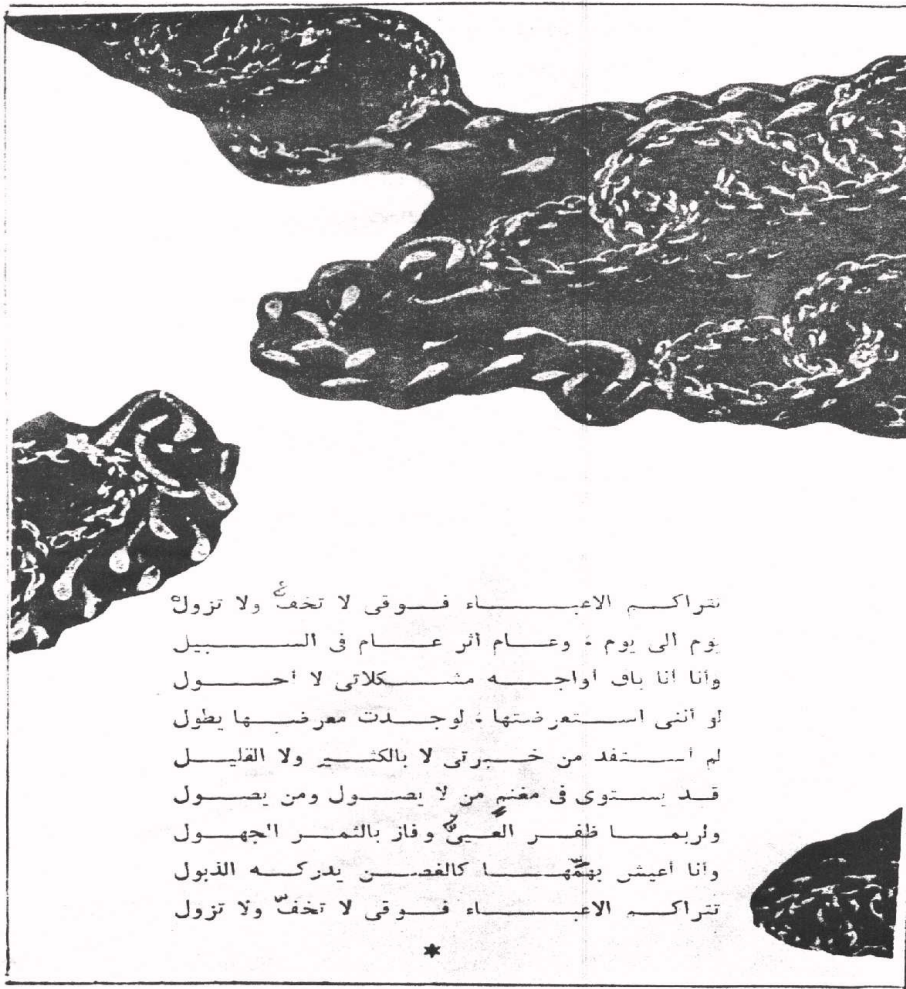 تتراكم الاعباء فوقى لا تخفُّ ولا تزولُ
يوم الى يوم ، وعام أثر عام فى السبيل
وأنا أنا باق أواجه مشكلاتى لا أحول
لو أننى استعرضتها ، لوجدت معرضها يطول
لم أستفد من خبرتى لا بالكثير ولا القليل
قد يستوى فى مغنمٍ من لا يصول ومن يصول
ولربما ظفر العيىُّ وفاز بالثمر الجهول
وأنا أعيش بهمّها كالغصن يدركه الذبول
تتراكم الاعباء فوقى لا تخفّ ولا تزول